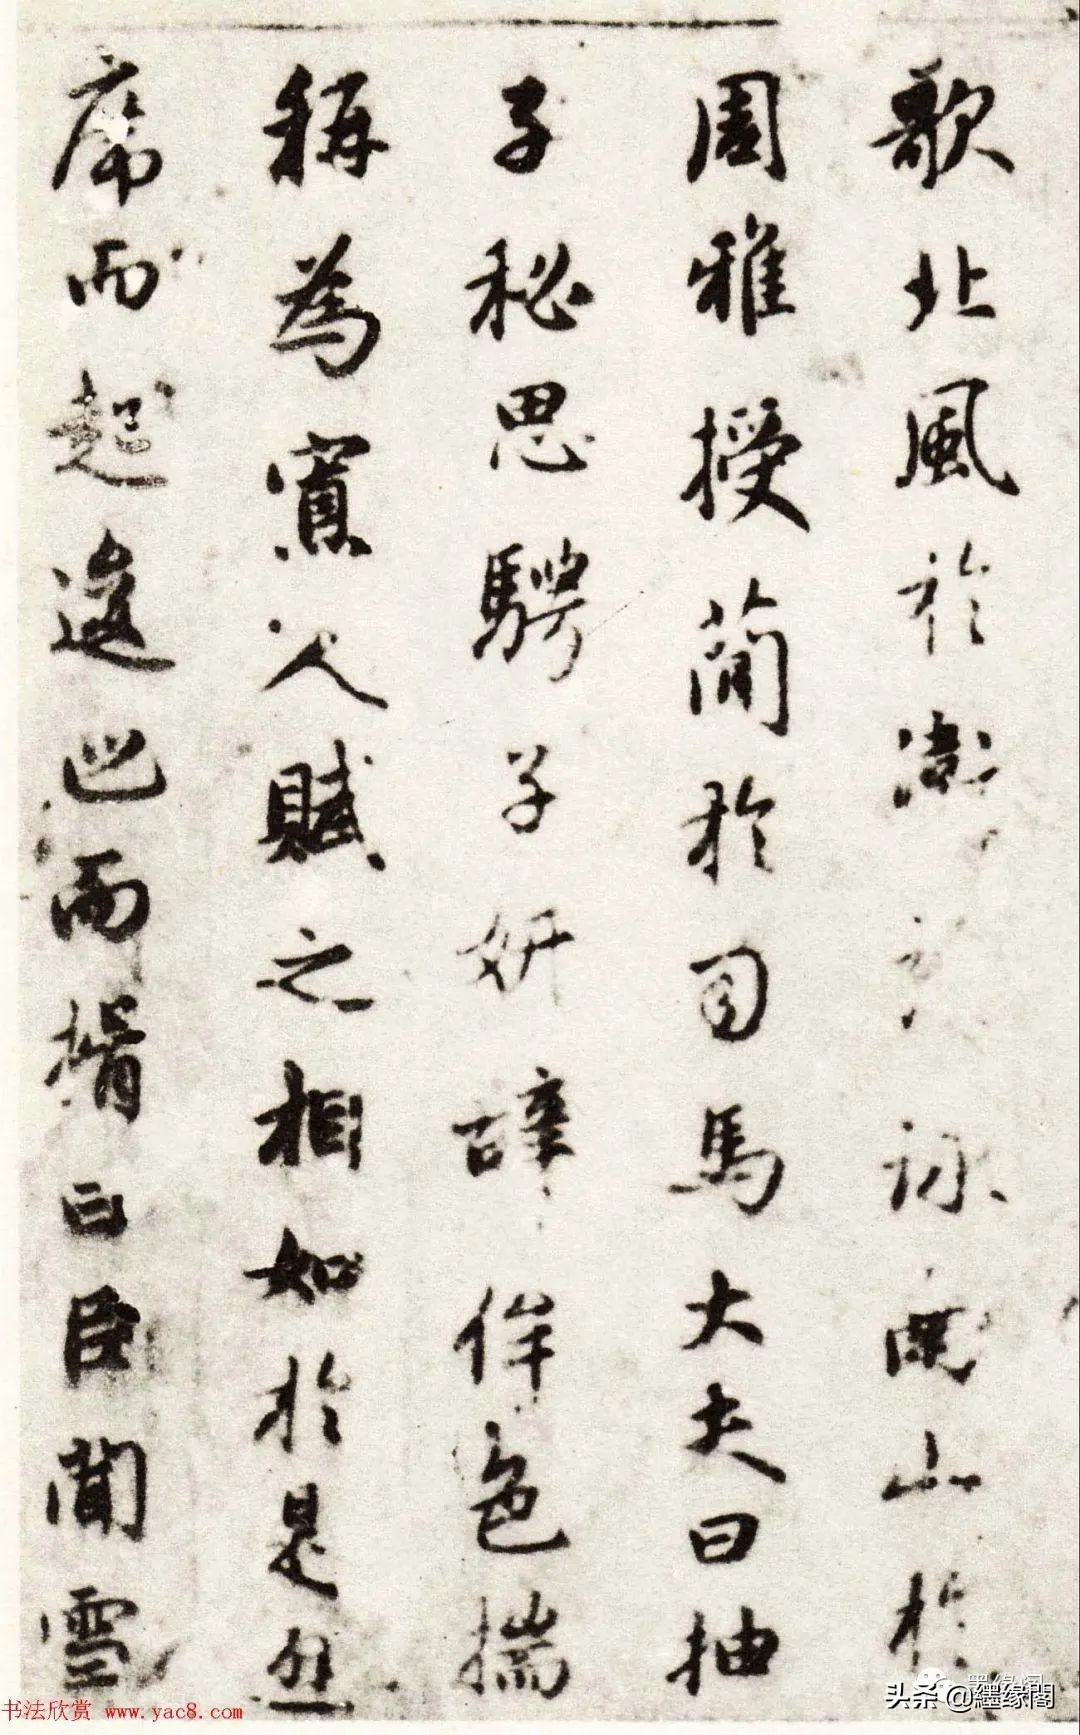 歌北風於衛詠南山於
周雅授蕳於司馬大夫曰抽
子秘思騁子妍辭侔色揣
稱為寡人賦之相如於是避
席而起逡巡而揖曰臣聞雪
书法欣赏 www.yac8.com
头条 @纆缘閣